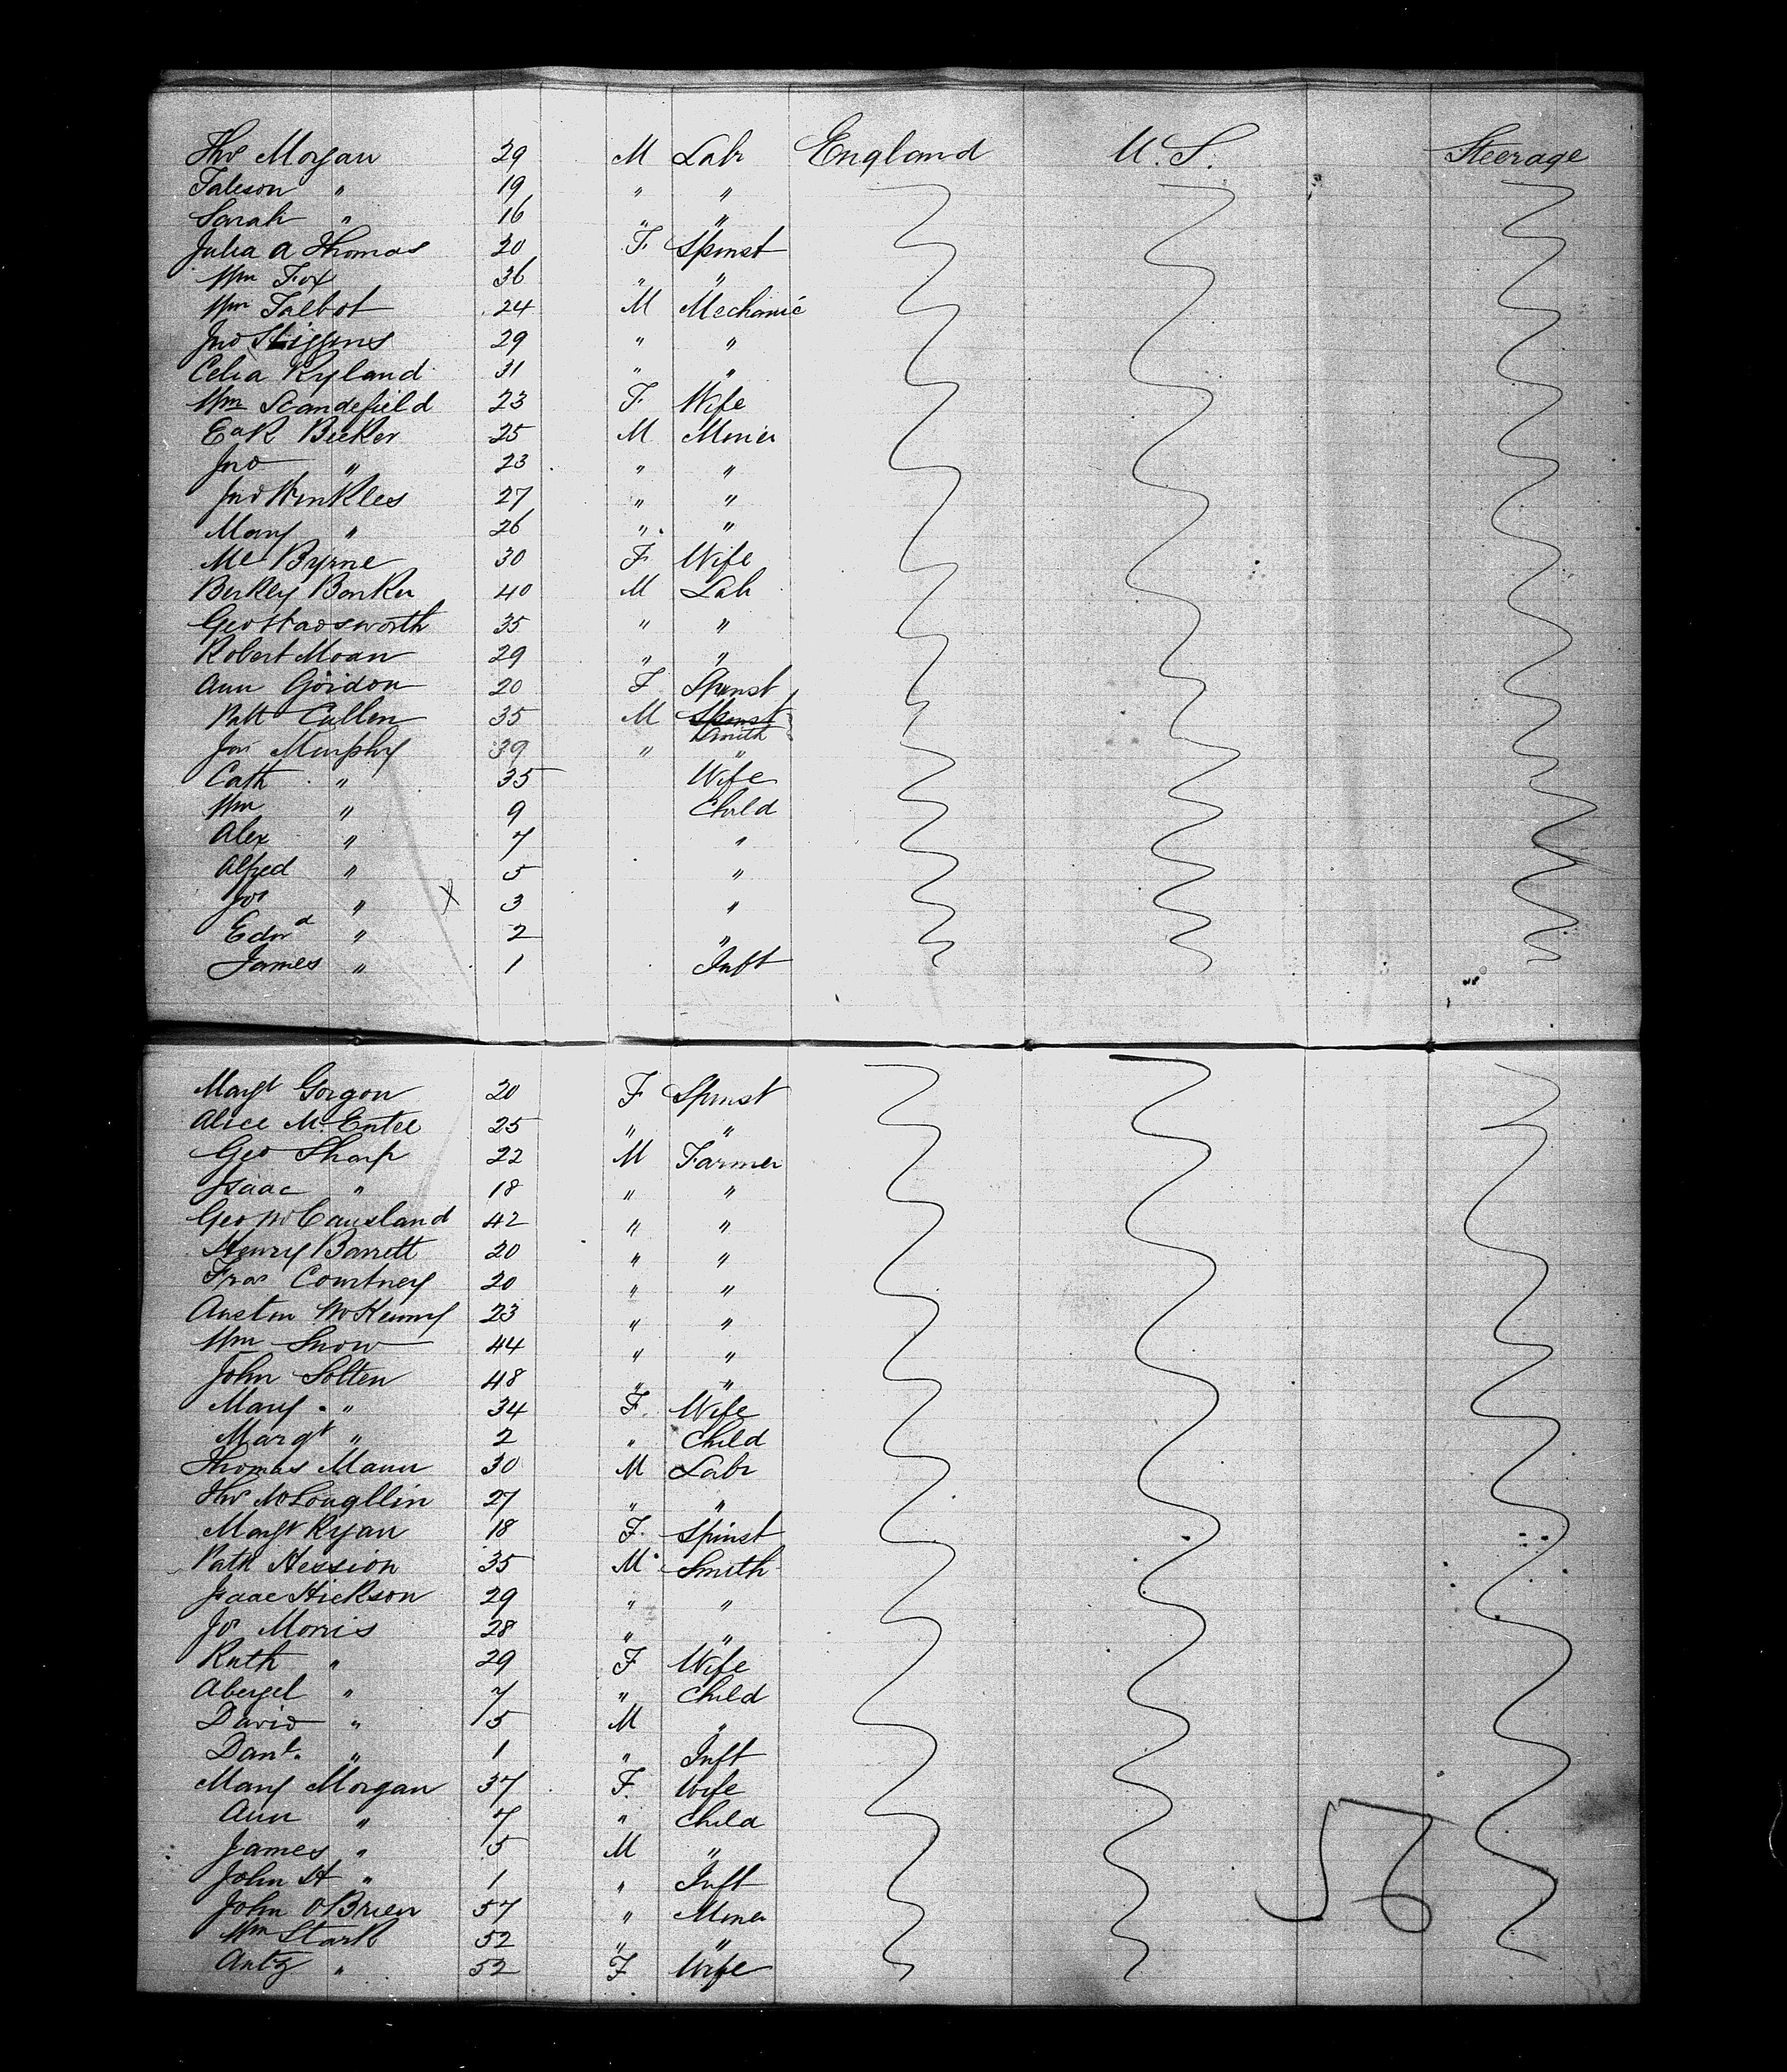 Thos Morgan 29 M Labr England U.S. Steerage
Taleson " 19 " "
Sarah " 16 " "
Julia A Thomas 20 F Spinst
Wm Fox 36 " "
Wm Talbot 24 M Mechanic
Jno Higgins 29 " "
Celia Ryland 31 " "
Wm Standefield 23 F Wife
Becker 25 M Miner
Jno " 23 " "
Jno Winkles 27 " "
Mary " 26 " "
Byrne 30 F Wife
Berkley Barker 40 M Lab
Geo Wadsworth 35 " "
Robert Moan 29 " "
Ann Gordon 20 F Spinst
Patt Cullen 35 M Spinst
Smith
Jas Murphy 39 " "
Cath " 35 Wife
Wm " 9 Child
Alex " 7 "
Alfred " 5 "
Jos " X 3 "
Edwd " 2 "
James " 1 Inft
Margt Gorgon 20 F Spinst
Alice McEntee 25 " "
Geo Sharp 22 M Farmer
Isaac " 18 " "
Geo McCausland 42 " "
Henry Barrett 20 " "
Fras Courtney 20 " "
Austin McKenny 23 " "
Wm Snow 44 " "
John Solten 48 " "
Mary " 34 F Wife
Margt " 2 " Child
Thomas Mann 30 M Labr
Thos McLougllin 27 " "
Margt Ryan 18 F Spinst
Patk Hession 35 M Smith
Isaac Hickson 29 " "
Jos Morris 28 " "
Ruth " 29 F Wife
Abergel " 7 " Child
David " 5 M "
Danl. " 1 " Inft
Mary Morgan 37 F Wife
Ann " 7 " Child
James " 5 M "
John H " 1 " Inft
John OBrien 57 " Miner
Wm Stark 52 " "
" 52 F Wife
56